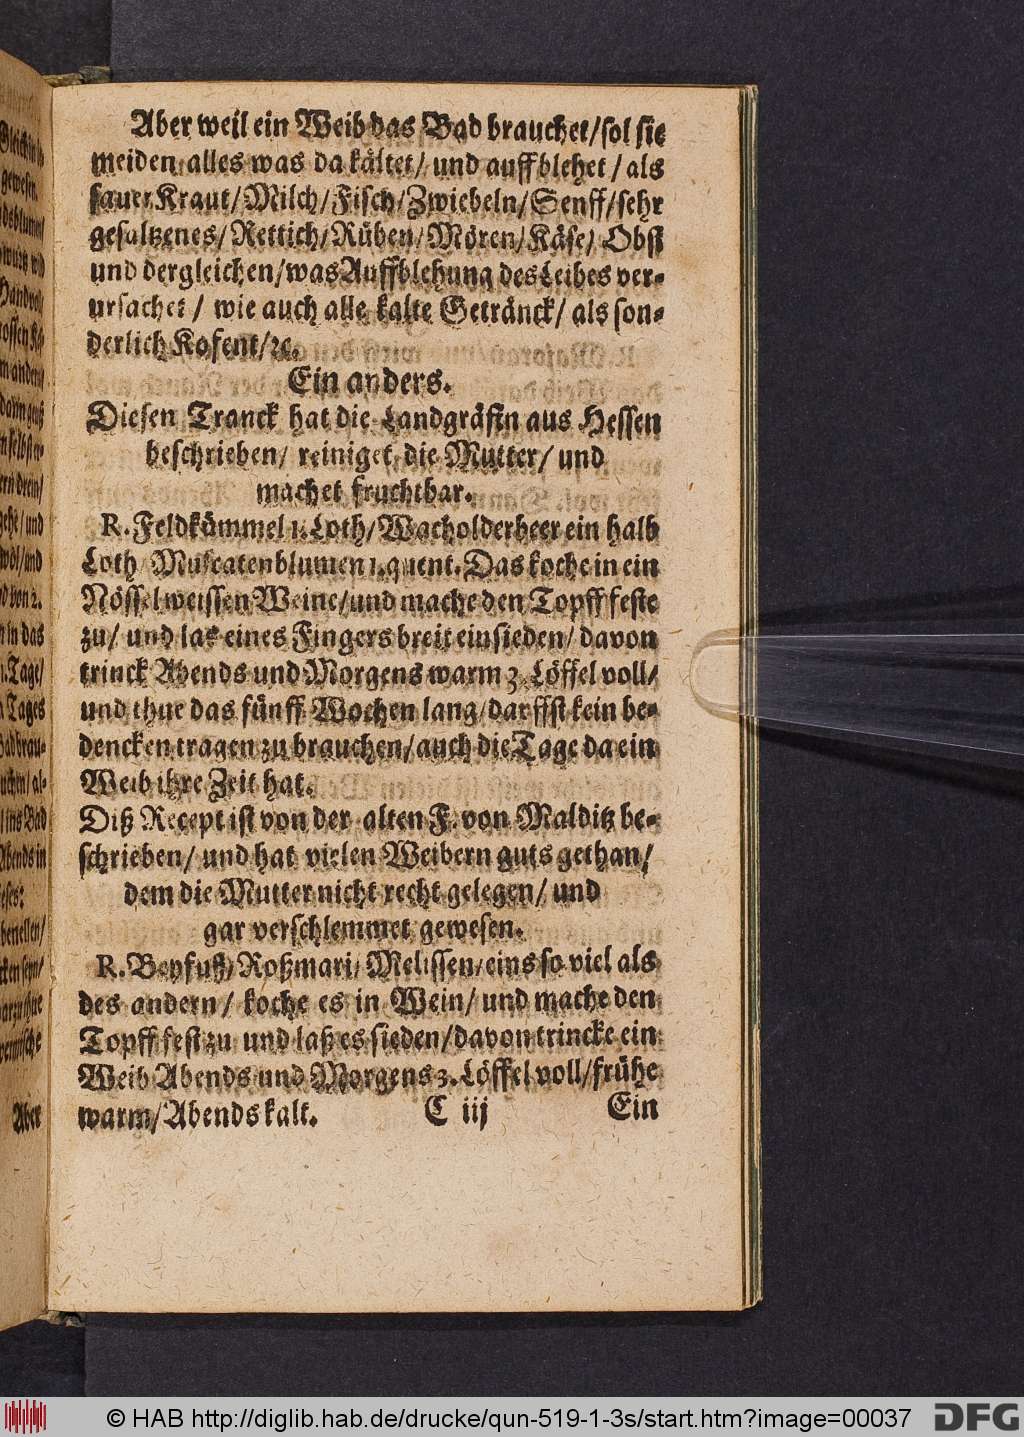 Aber weil ein Weib das Bad brauchet/ sol sie
meiden alles was da kältet/ und auffblehet/ als
sauer Kraut/ Milch/ Fisch/ Zwiebeln/ Senff/ sehr
gesaltzenes/ Rettich/ Rüben/ Mören/ Käse/ Obst
und dergleichen/ was Auffblehung des Leibes ver-
ursachet/ wie auch alle kalte Getränck/ als son-
derlich Kofent/ ꝛc.
Ein anders.
Diesen Tranck hat die Landgräfin aus Hessen
beschrieben/ reiniget die Mutter/ und
machet fruchtbar.
R. Feldkümmel 1. Loth/ Wacholderbeer ein halb
Loth/ Muscatenblumen 1. quent. Das koche in ein
Nössel weissen Weine/ und mache den Topff feste
zu/ und las eines Fingers breit einsieden/ davon
trinck Abends und Morgens warm 3. Löffel voll/
und thue das fünff Wochen lang/ darffst kein be-
dencken tragen zu brauchen/ auch die Tage da ein
Weib ihre Zeit hat.
Diß Recept ist von der alten F. von Malditz be-
schrieben/ und hat vielen Weibern guts gethan/
dem die Mutter nicht recht gelegen/ und
gar verschlemmet gewesen.
R. Beyfuß/ Roßmari/ Melissen/ eins so viel als
des andern/ koche es in Wein/ und mache den
Topff fest zu und laß es sieden/ davon trincke ein
Weib Abends und Morgens 3. Löffel voll/ frühe
warm/ Abends kalt. C iij Ein
gewesen.
Tages
Aber
© HAB http://diglib.hab.de/drucke/qun-519-1-3s/start.htm?image=00037 DFG